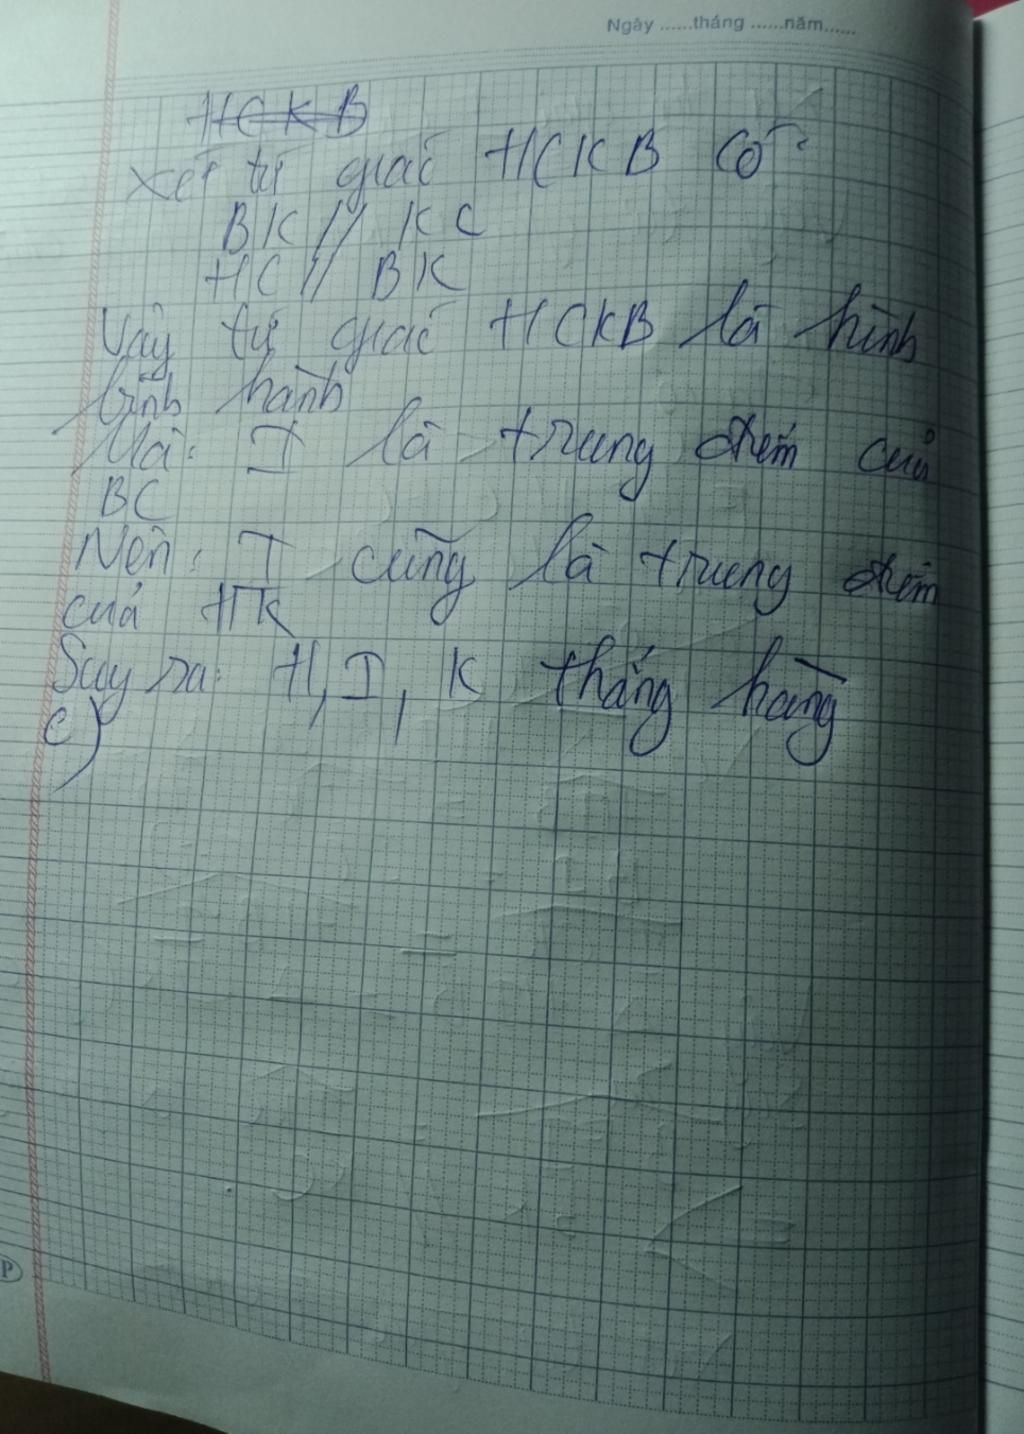 Ngày ......tháng ......năm......
HCKB
Xét tứ giác HCKB có:
BK // KC
HC // BK
Vậy tứ giác HCKB là hình
bình hành
Mà: I là trung điểm của
BC
Nên: I cũng là trung điểm
của HK
Suy ra: H, I, K thẳng hàng
c)
P